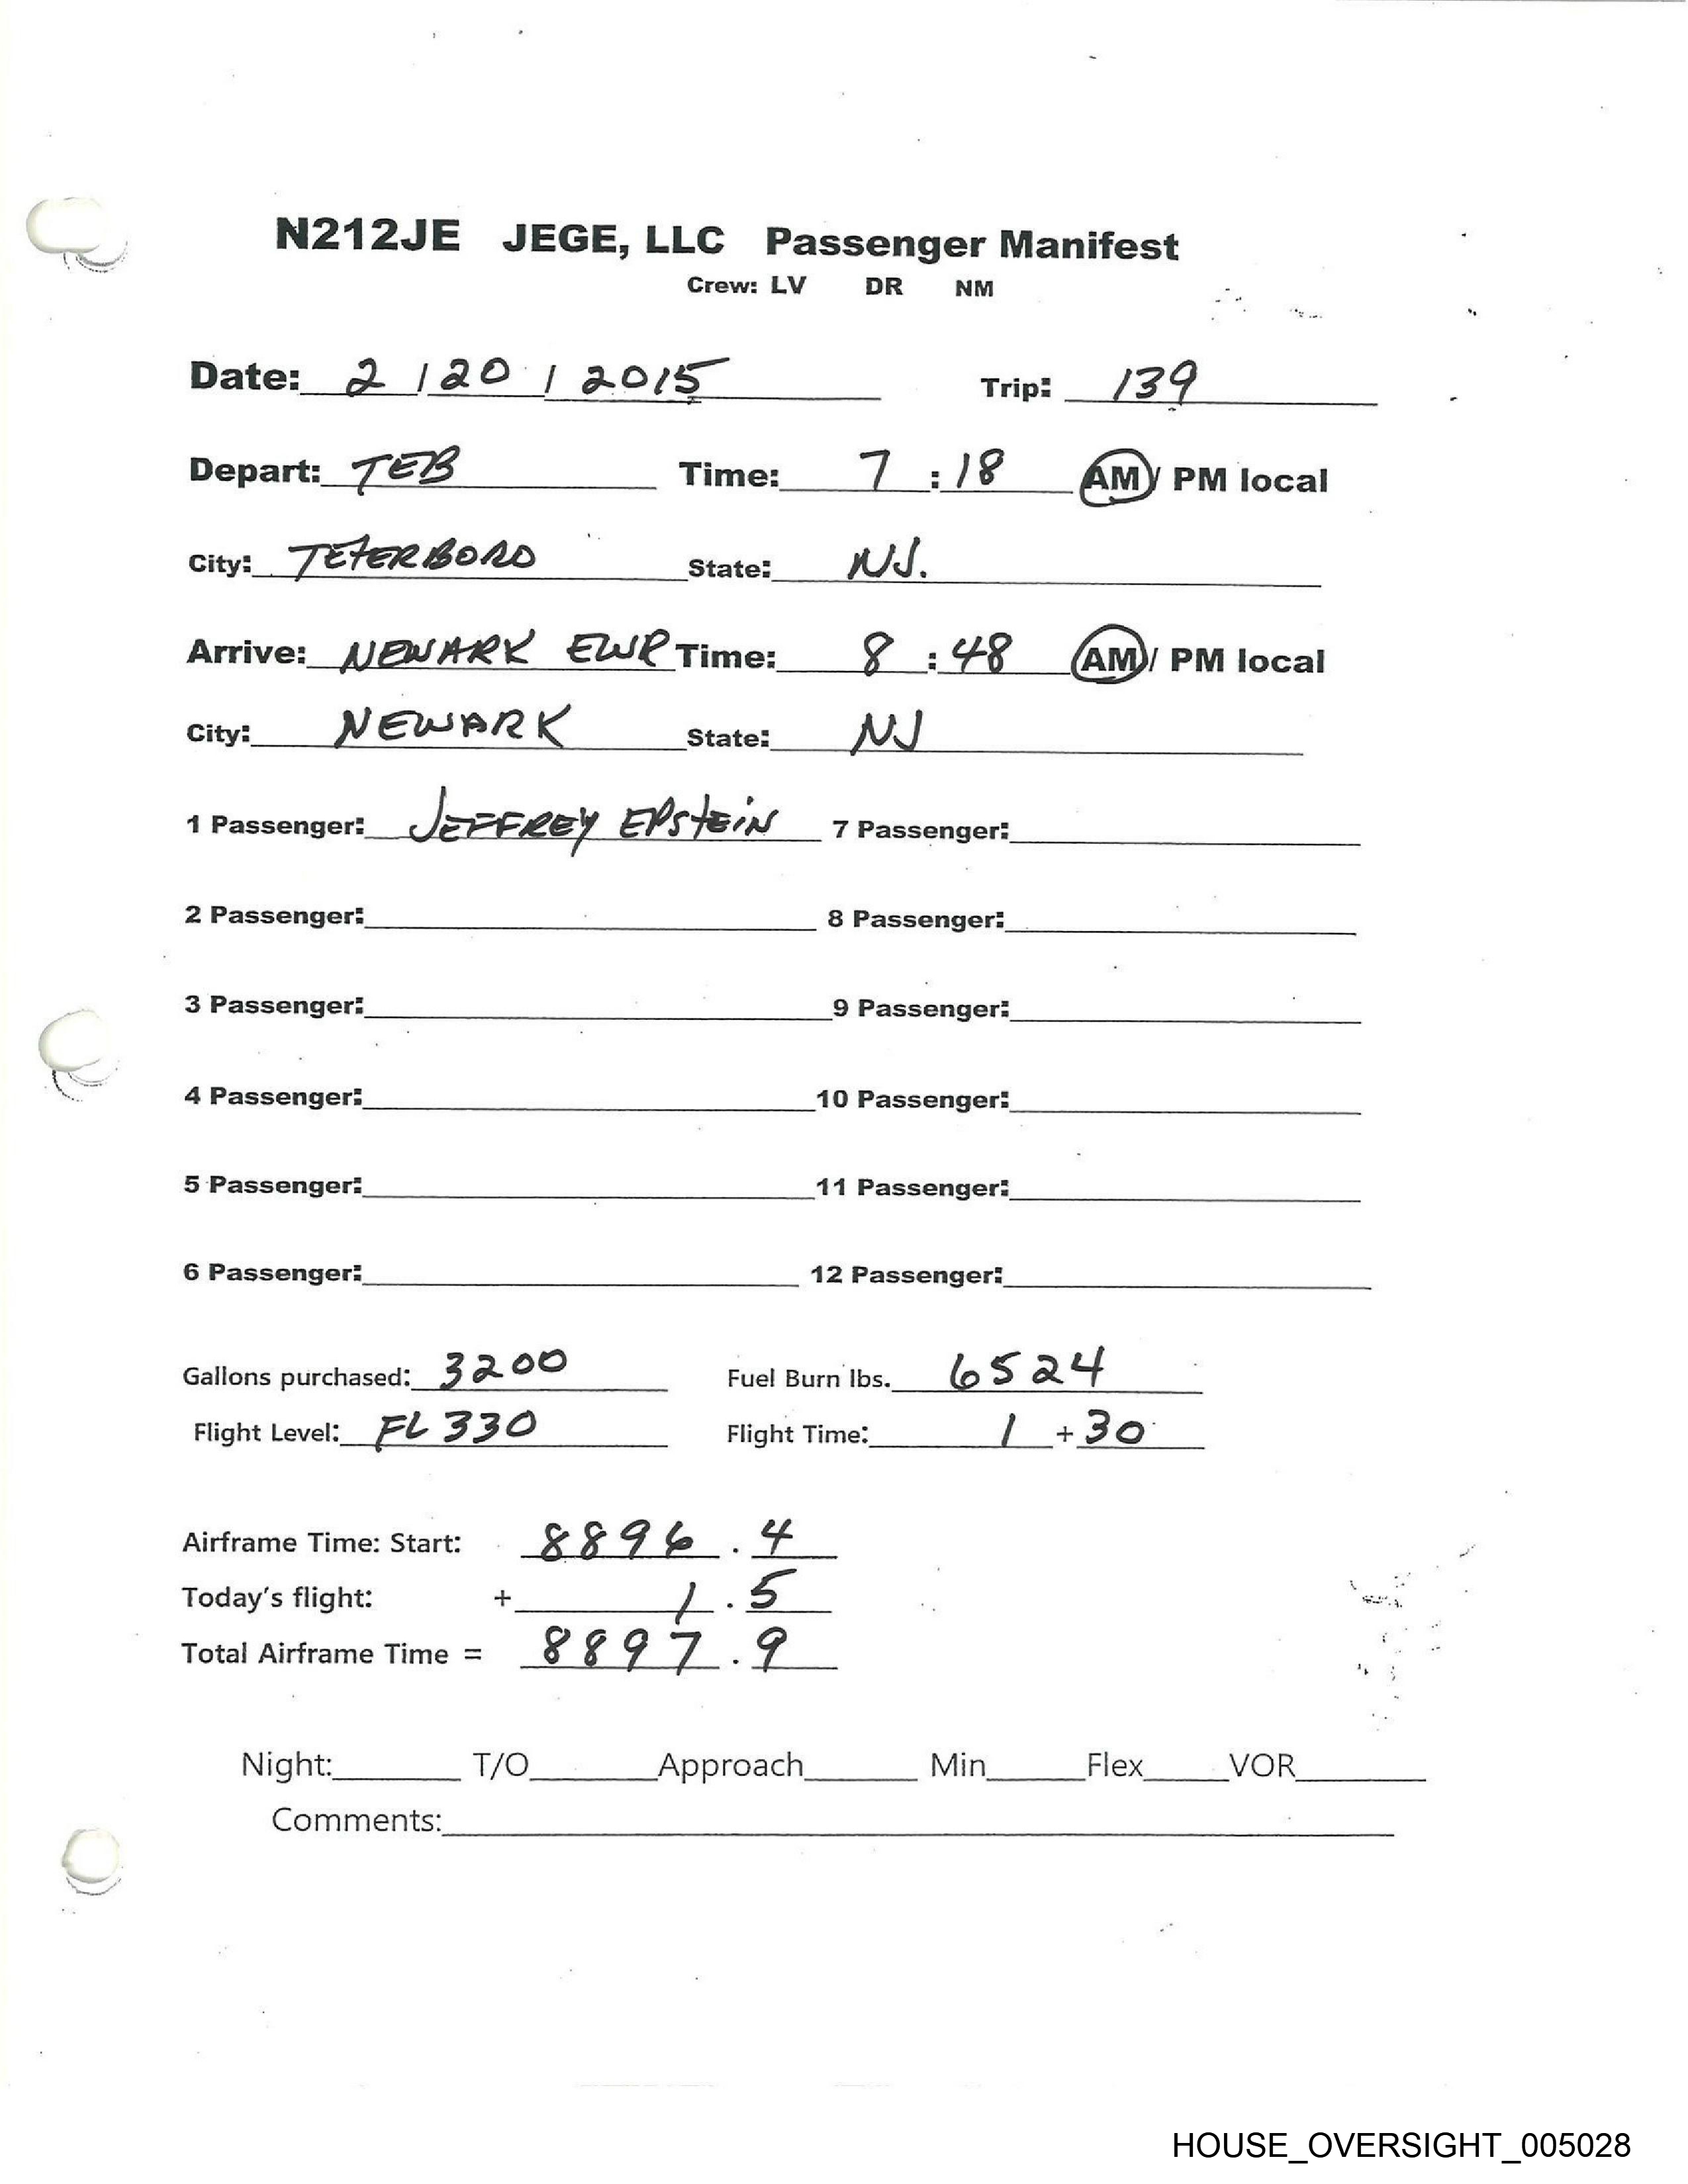 N212JE JEGE, LLC Passenger Manifest
Crew: LV DR NM
Date: 2 / 20 / 2015 Trip: 139
Depart: TEB Time: 7 : 18 AM / PM local
City: TETERBORO State: NJ.
Arrive: NEWARK EWR Time: 8 : 48 AM / PM local
City: NEWARK State: NJ
1 Passenger: JEFFREY EPSTEIN 7 Passenger:
2 Passenger: 8 Passenger:
3 Passenger: 9 Passenger:
4 Passenger: 10 Passenger:
5 Passenger: 11 Passenger:
6 Passenger: 12 Passenger:
Gallons purchased: 3200 Fuel Burn lbs. 6524
Flight Level: FL 330 Flight Time: 1 + 30
Airframe Time: Start: 8896 . 4
Today's flight: + 1 . 5
Total Airframe Time = 8897 . 9
Night: T/O Approach Min Flex VOR
Comments:
HOUSE_OVERSIGHT_005028